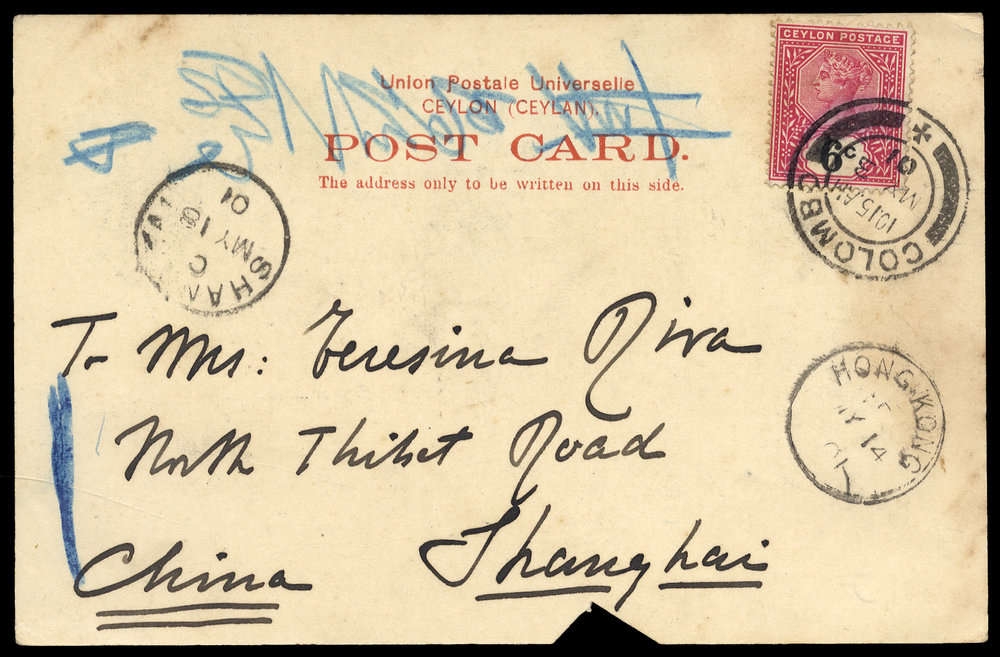 CEYLON POSTAGE
Union Postale Universelle
CEYLON (CEYLAN).
POST CARD.
The address only to be written on this side.
6 C.
COLOMBO
1015 AM
01
SHANGHAI
C
MY 18
01
To Mrs: Teresina Riva
HONG KONG
MY 14
01
North Thibet Road
China Shanghai